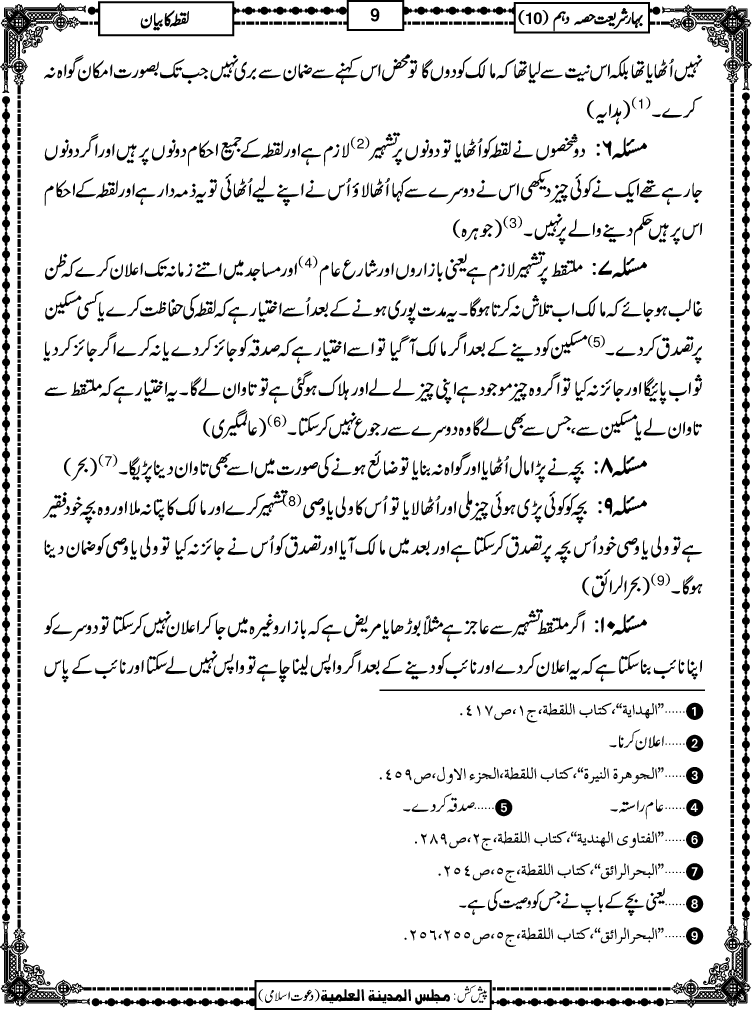 بہار شریعت حصہ دہم (10)
9
لقطہ کا بیان
نہیں اُٹھایا تھا بلکہ اس نیت سے لیا تھا کہ مالک کو دوں گا تو محض اس کہنے سے ضمان سے بری نہیں جب تک بصورت امکان گواہ نہ
کرے۔(1) (ہدایہ)
مسئلہ ۶: دو شخصوں نے لقطہ کو اُٹھایا تو دونوں پر تشہیر(2) لازم ہے اور لقطہ کے جمیع احکام دونوں پر ہیں اور اگر دونوں
جارہے تھے ایک نے کوئی چیز دیکھی اس نے دوسرے سے کہا اُٹھالاؤ اُس نے اپنے لیے اُٹھائی تو یہ ذمہ دار ہے اور لقطہ کے احکام
اس پر ہیں حکم دینے والے پر نہیں۔(3) (جوہرہ)
مسئلہ ۷: ملتقط پر تشہیر لازم ہے یعنی بازاروں اور شارع عام(4) اور مساجد میں اتنے زمانہ تک اعلان کرے کہ ظن
غالب ہو جائے کہ مالک اب تلاش نہ کرتا ہوگا۔ یہ مدت پوری ہونے کے بعد اُسے اختیار ہے کہ لقطہ کی حفاظت کرے یا کسی مسکین
پر تصدق کردے۔(5) مسکین کو دینے کے بعد اگر مالک آگیا تو اسے اختیار ہے کہ صدقہ کو جائز کردے یا نہ کرے اگر جائز کر دیا
ثواب پائیگا اور جائز نہ کیا تو اگر وہ چیز موجود ہے اپنی چیز لے لے اور ہلاک ہوگئی ہے تو تاوان لے گا۔ یہ اختیار ہے کہ ملتقط سے
تاوان لے یا مسکین سے، جس سے بھی لے گا وہ دوسرے سے رجوع نہیں کرسکتا۔(6) (عالمگیری)
مسئلہ ۸: بچہ نے پڑا مال اُٹھایا اور گواہ نہ بنایا تو ضائع ہونے کی صورت میں اسے بھی تاوان دینا پڑیگا۔(7) (بحر)
مسئلہ ۹: بچہ کو کوئی پڑی ہوئی چیز ملی اور اُٹھا لایا تو اُس کا ولی یا وصی(8) تشہیر کرے اور مالک کا پتا نہ ملا اور وہ بچہ خود فقیر
ہے تو ولی یا وصی خود اُس بچہ پر تصدق کرسکتا ہے اور بعد میں مالک آیا اور تصدق کو اُس نے جائز نہ کیا تو ولی یا وصی کو ضمان دینا
ہوگا۔(9) (بحرالرائق)
مسئلہ ۱۰: اگر ملتقط تشہیر سے عاجز ہے مثلاً بوڑھا یا مریض ہے کہ بازار وغیرہ میں جا کر اعلان نہیں کرسکتا تو دوسرے کو
اپنا نائب بنا سکتا ہے کہ یہ اعلان کردے اور نائب کو دینے کے بعد اگر واپس لینا چاہے تو واپس نہیں لے سکتا اور نائب کے پاس
1 ......”الهداية“، كتاب اللقطة، ج١، ص٤١٧.
2 ......اعلان کرنا۔
3 ......”الجوهرة النيرة“، كتاب اللقطة،الجزء الاول، ص٤٥٩.
4 ......عام راستہ۔ 5 ......صدقہ کردے۔
6 ......”الفتاوى الهندية“، كتاب اللقطة، ج٢، ص٢٨٩.
7 ......”البحرالرائق“، كتاب اللقطة، ج٥، ص٢٥٤.
8 ......یعنی بچے کے باپ نے جس کو وصیت کی ہے۔
9 ......”البحرالرائق“، كتاب اللقطة، ج٥، ص٢٥٥،٢٥٦.
پیش کش: مجلس المدينة العلمية (دعوت اسلامی)